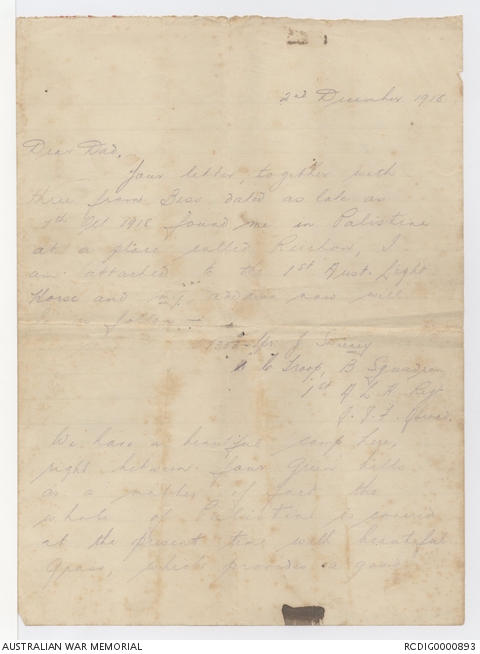 2nd December 1918
Dear Dad,
Your letter, together with
three from Bess dated as late as
7th Oct 1918 found me in Palistine
at a place called Reishon, I
am attached to the 1st Aust. Light
Horse and my address now will
be as follows:-
Tpr. J
C Troop, B Squadron
1st A L H Regt
A. I. F. Abroad.
We have a beautiful camp here,
right between four green hills
as a matter of fact the
whole of Palistine is covered
at the present time with beautiful
grass, which provides a good
AUSTRALIAN WAR MEMORIAL
RCDIG0000893